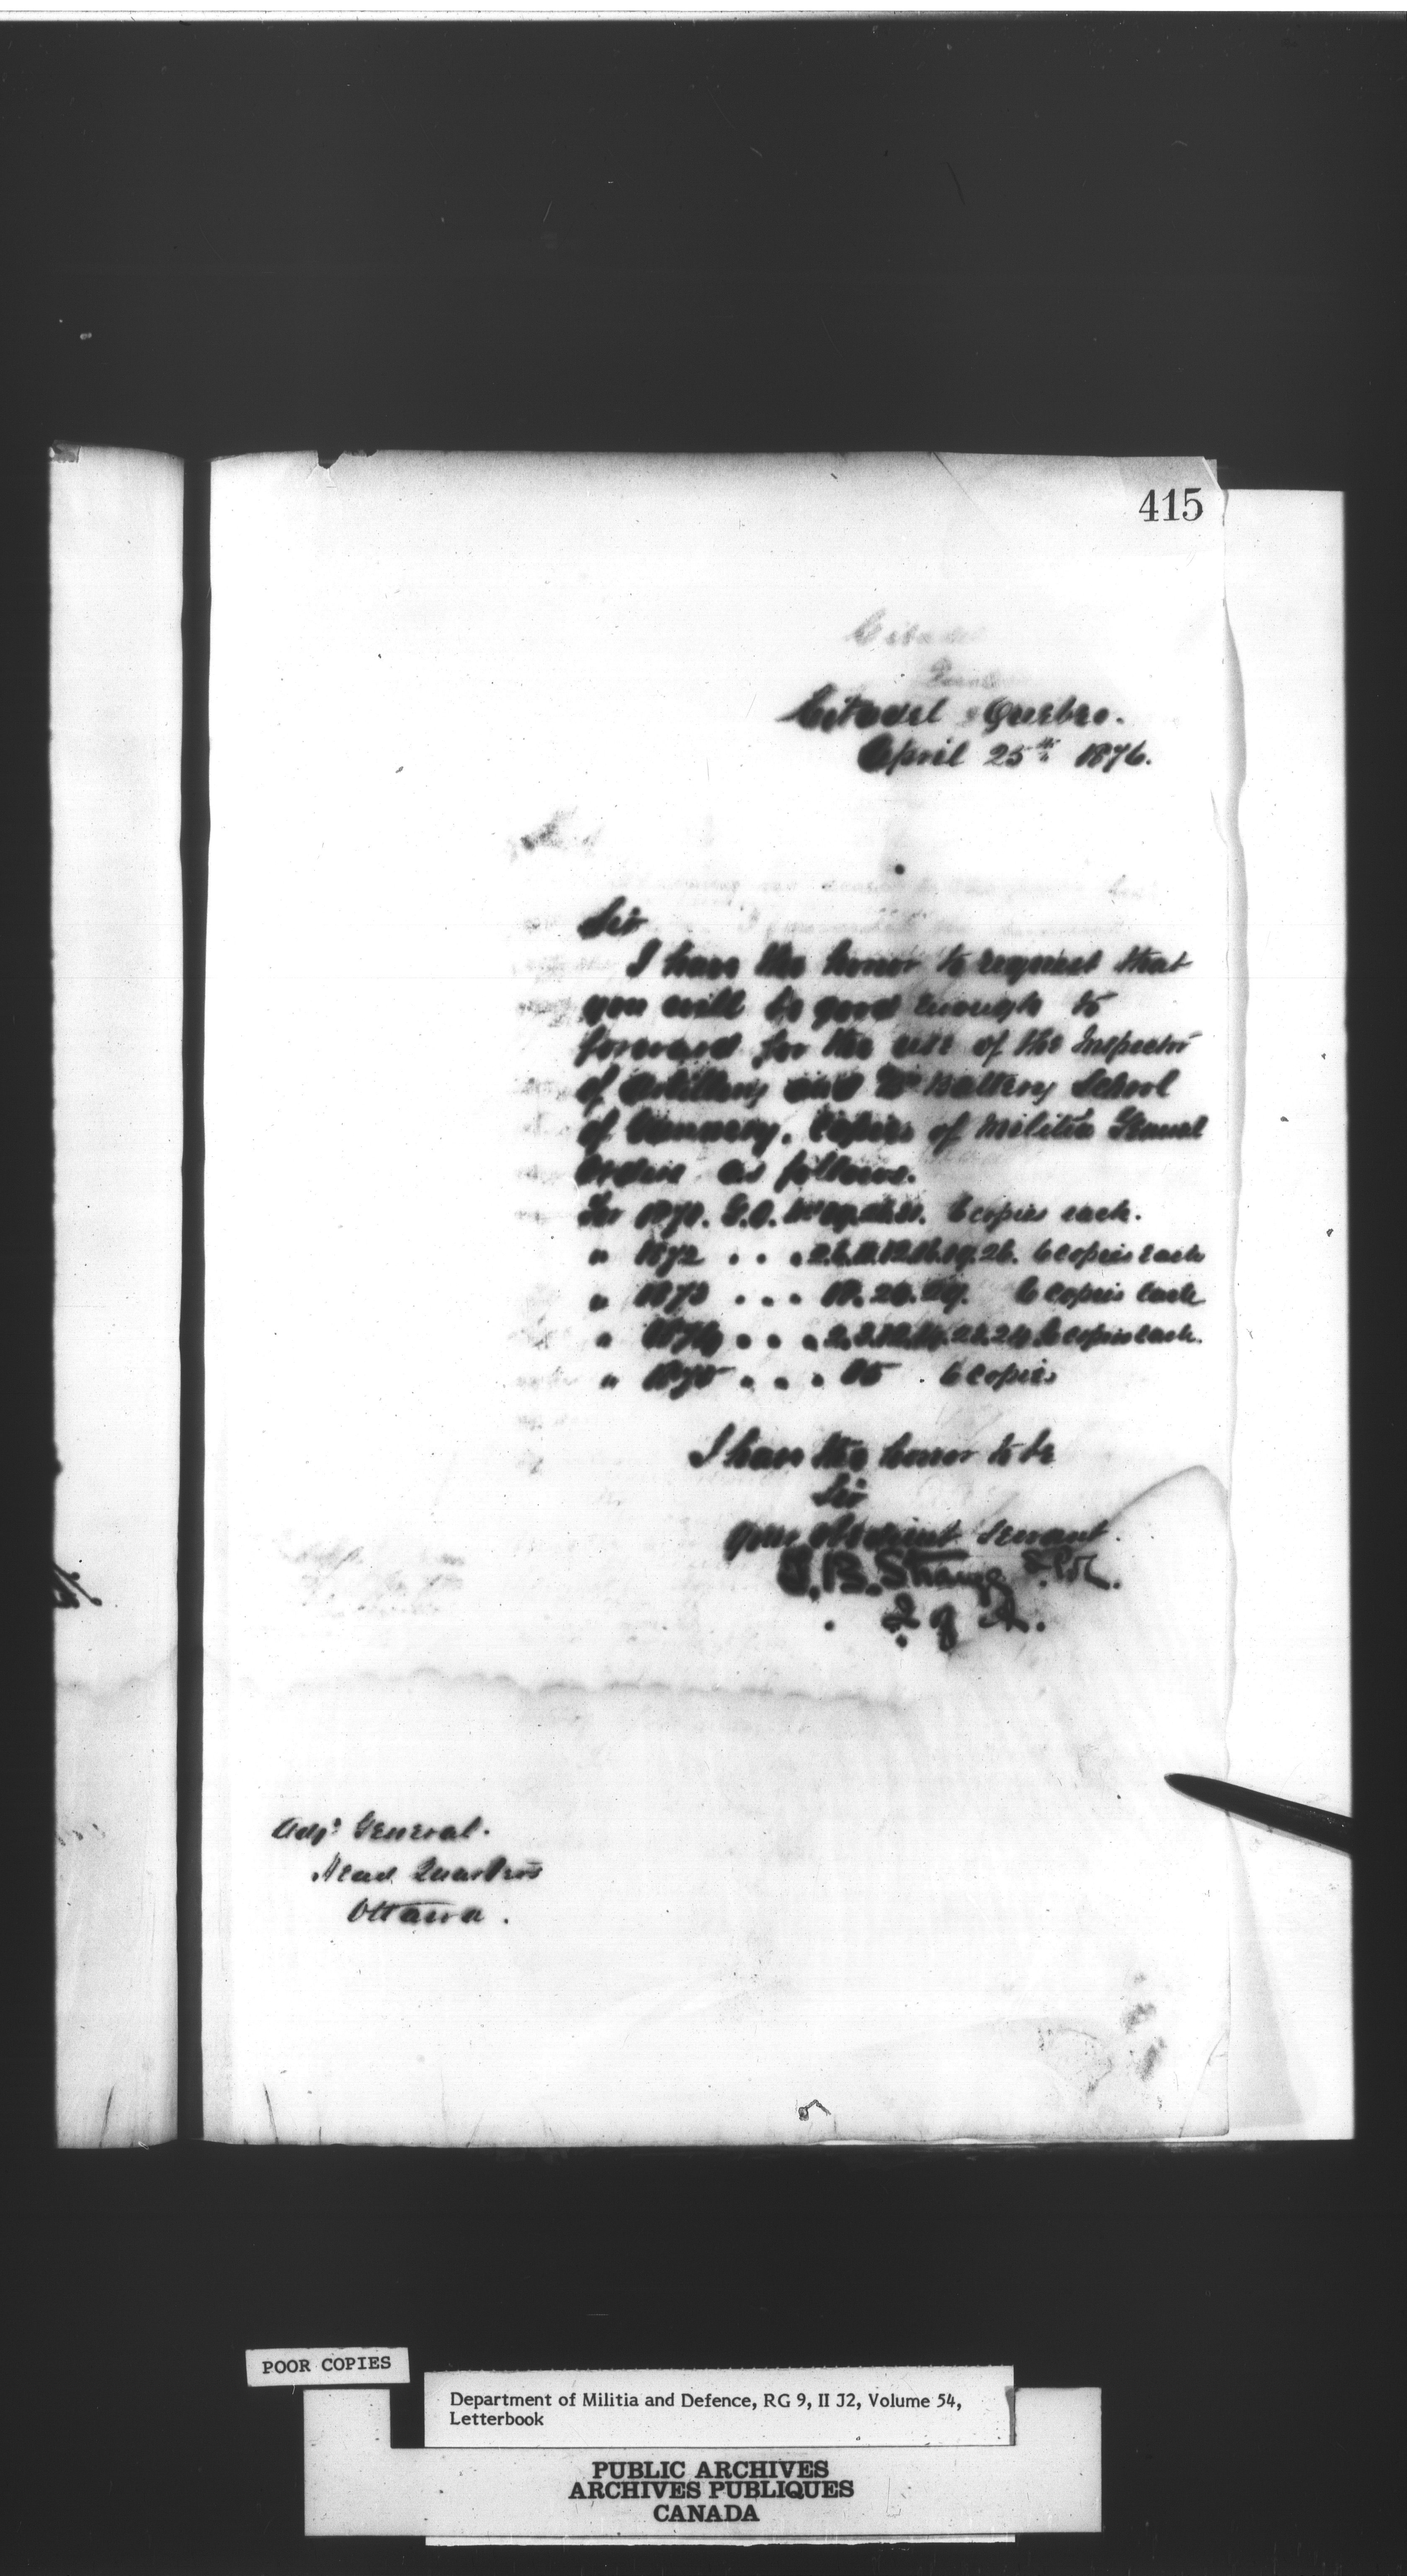 415
Citadel
Citadel Quebec.
April 25th 1876.
Sir
I have the honor to request that
you will be good enough to
forward for the use of the Inspector
of Artillery and "B" Battery School
of Gunnery. Copies of Militia General
Orders as follows.
For 1871. G.O. 6 copies each.
" 1872 . . . 26. 6 copies each
" 1873 . . . 6 copies each
" 1874 . . . 6 copies each.
" 1875 . . . 15 . 6 copies
I have the honor to be
Sir
your obedient Servant.
T.B. Strange
I of A.
Adjt General.
Head Quarters
Ottawa.
POOR COPIES
Department of Militia and Defence, RG 9, II J2, Volume 54,
Letterbook
PUBLIC ARCHIVES
ARCHIVES PUBLIQUES
CANADA